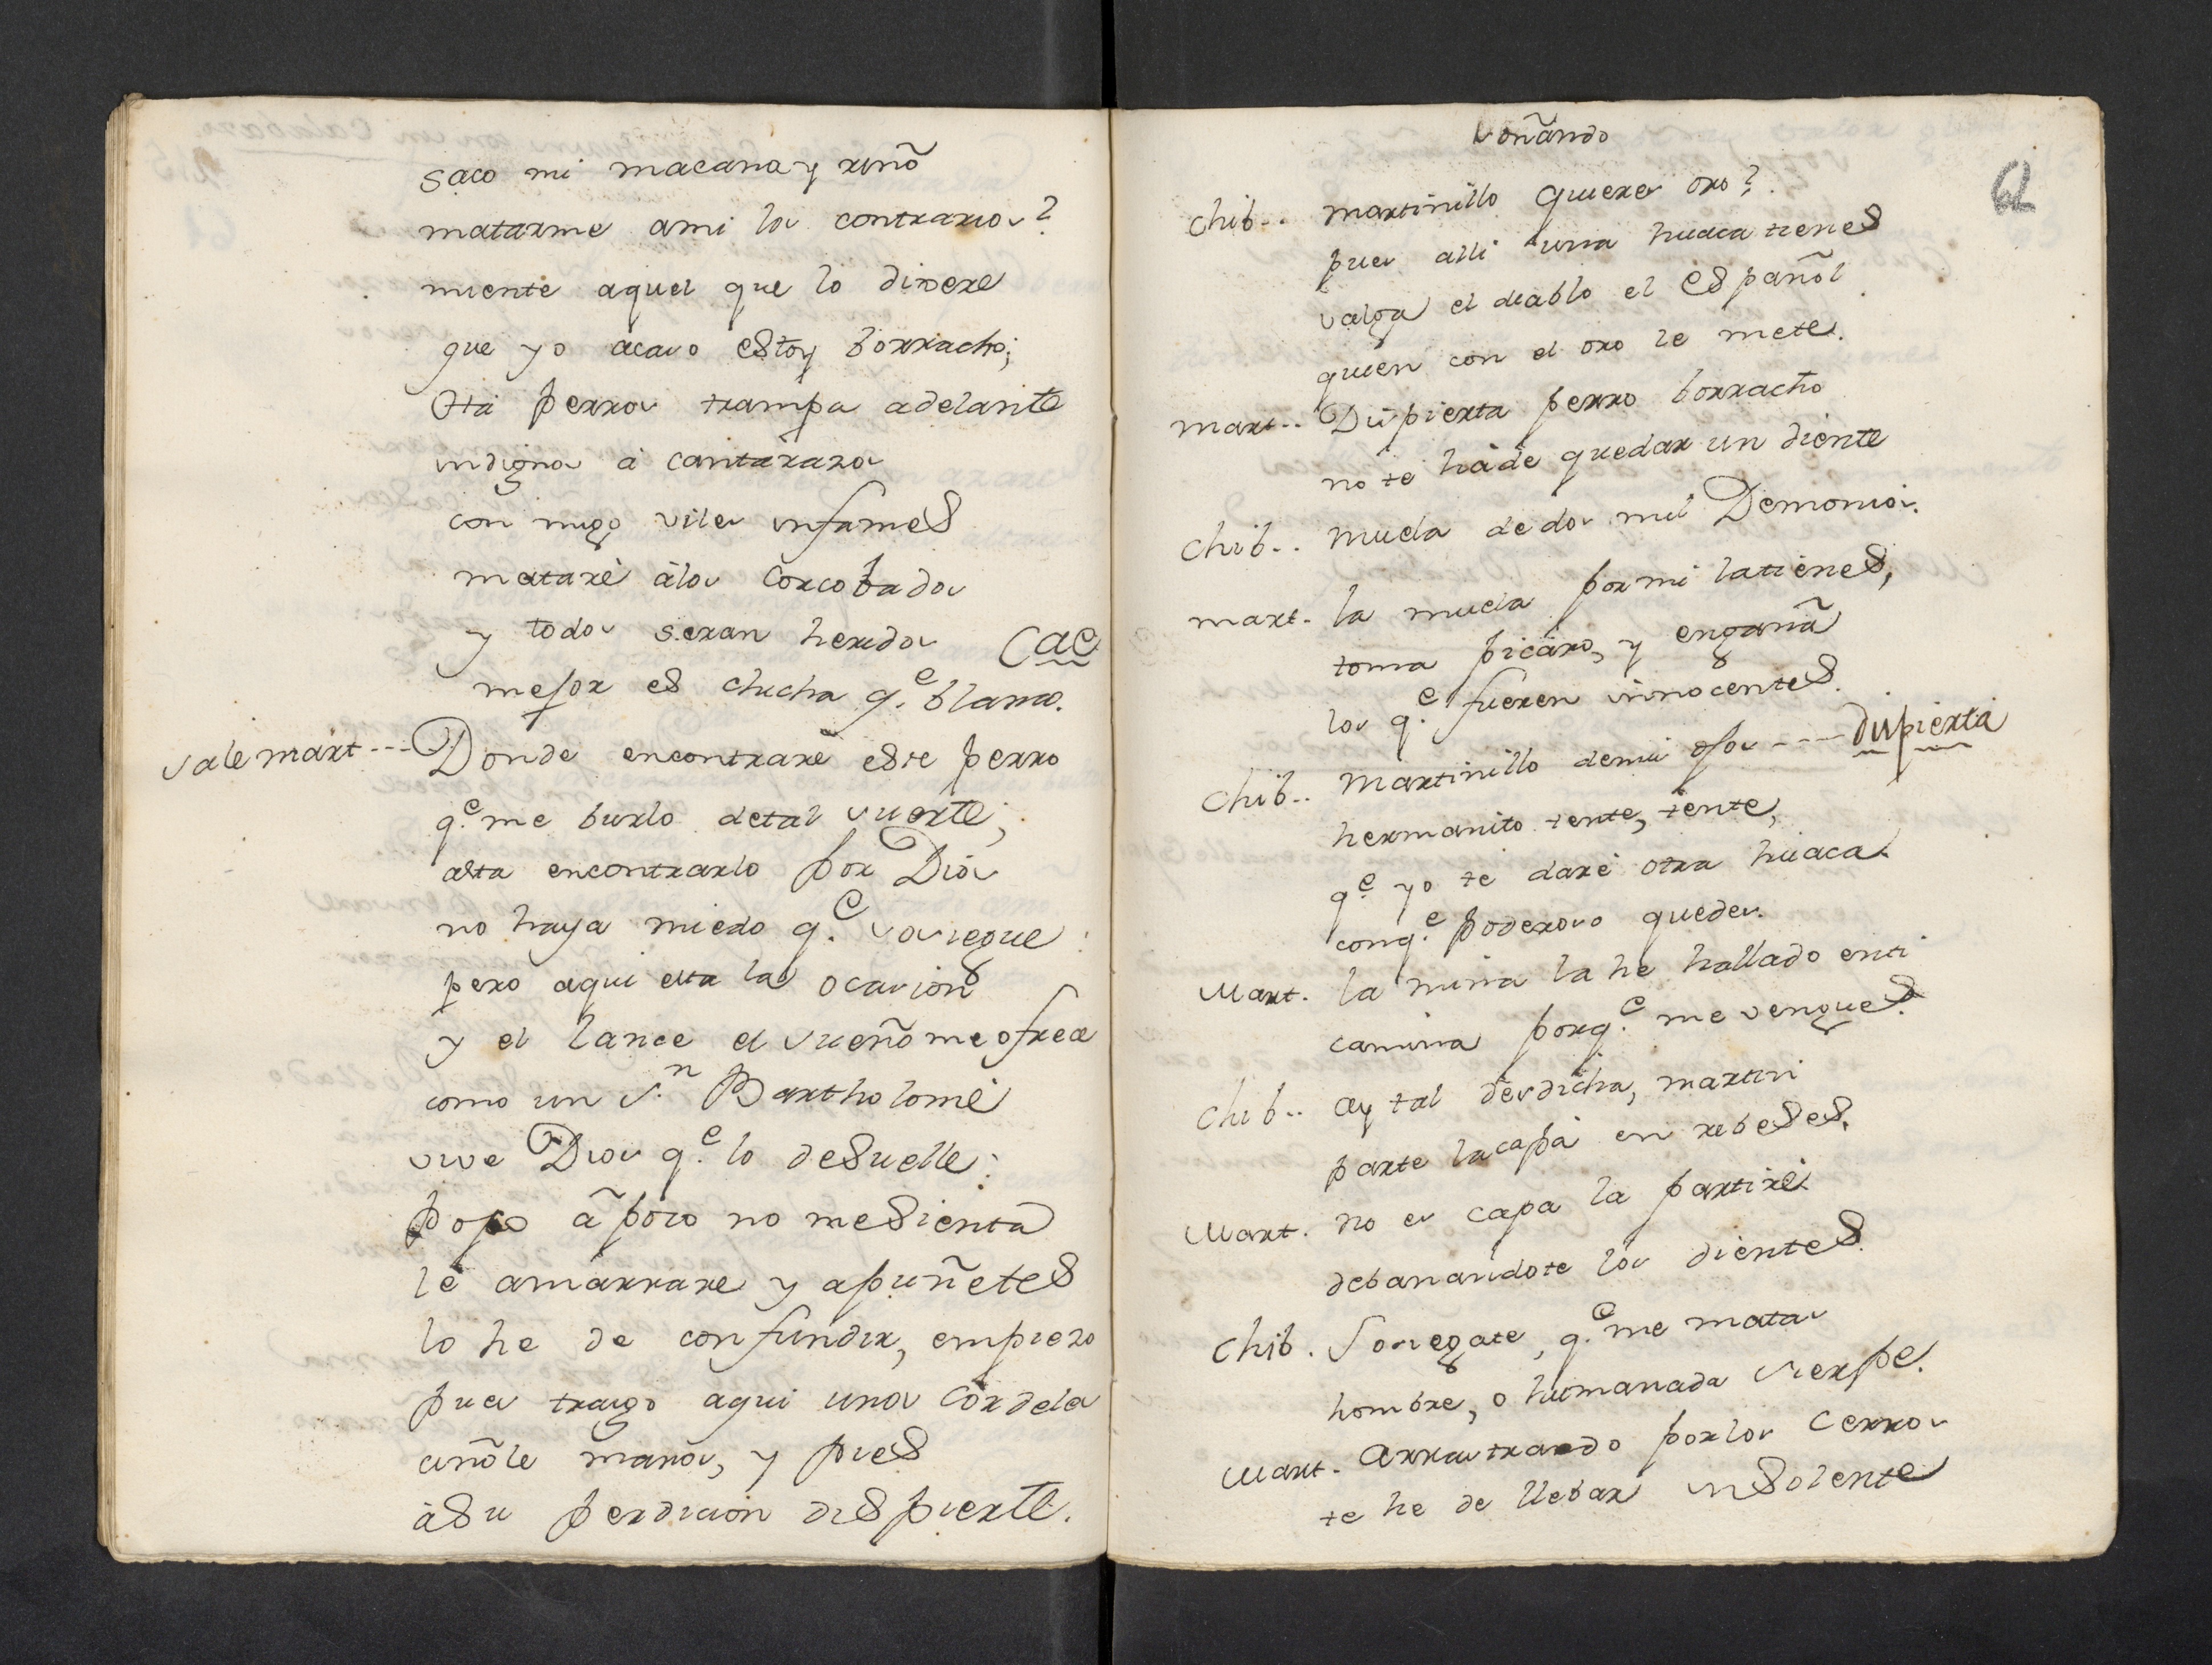 saco mi macana y riño
matarme ami los contrarios?
miente aquel que lo dixere
que yo acaso estoy borracho;
Ha perros trampa adelante
indignos á cantarazos
con migo viles infames
mataré álos corcobados
y todos seran heridos Cae
mejor es chicha q.e blanco.
sale mart--- Donde encontraré este perro
q.e me burlo detal suerte,
asta encontrarlo por Dios
no haya miedo q.e sosiegue:
pero aqui esta la ocasion
y el lance el sueño me ofrece
como un S.n Bartholomé
vive Dios q.e lo desuelle:
Poco á poco no me sienta
le amarrare y apuñetes
lo he de confundir, empiezo
pues traigo aqui unos cordeles
ciñole manos, y pies
á su perdicion dispierte.
soñando
Chib-- martinillo quieres oro?
pues alli una huaca tienes
valga el diablo el español
quien con el oro le mete.
mart-- Dispierta perro borracho
no te háde quedar un diente
Chib-- muela de dos mil Demonios.
mart- la muela por mi latienes,
toma picaro, y engaña
los q.e fueren innocentes.
Chib-- Martinillo demis ojos --- dispierta
hermanito tente, tente,
q.e yo te daré otra huaca
conq.e poderoso quedes.
Mart. la mina la he hallado enti
camina porq.e me vengues.
Chib-- ay tal desdicha, martin
parte la capa en rebeses.
Mart. no es capa la partiré
debanandote los dientes.
Chib. Sosiegate, q.e me matas
hombre, o humanada sierpe.
Mart. Arrastrando por los Cerros
te he de llebar insolente